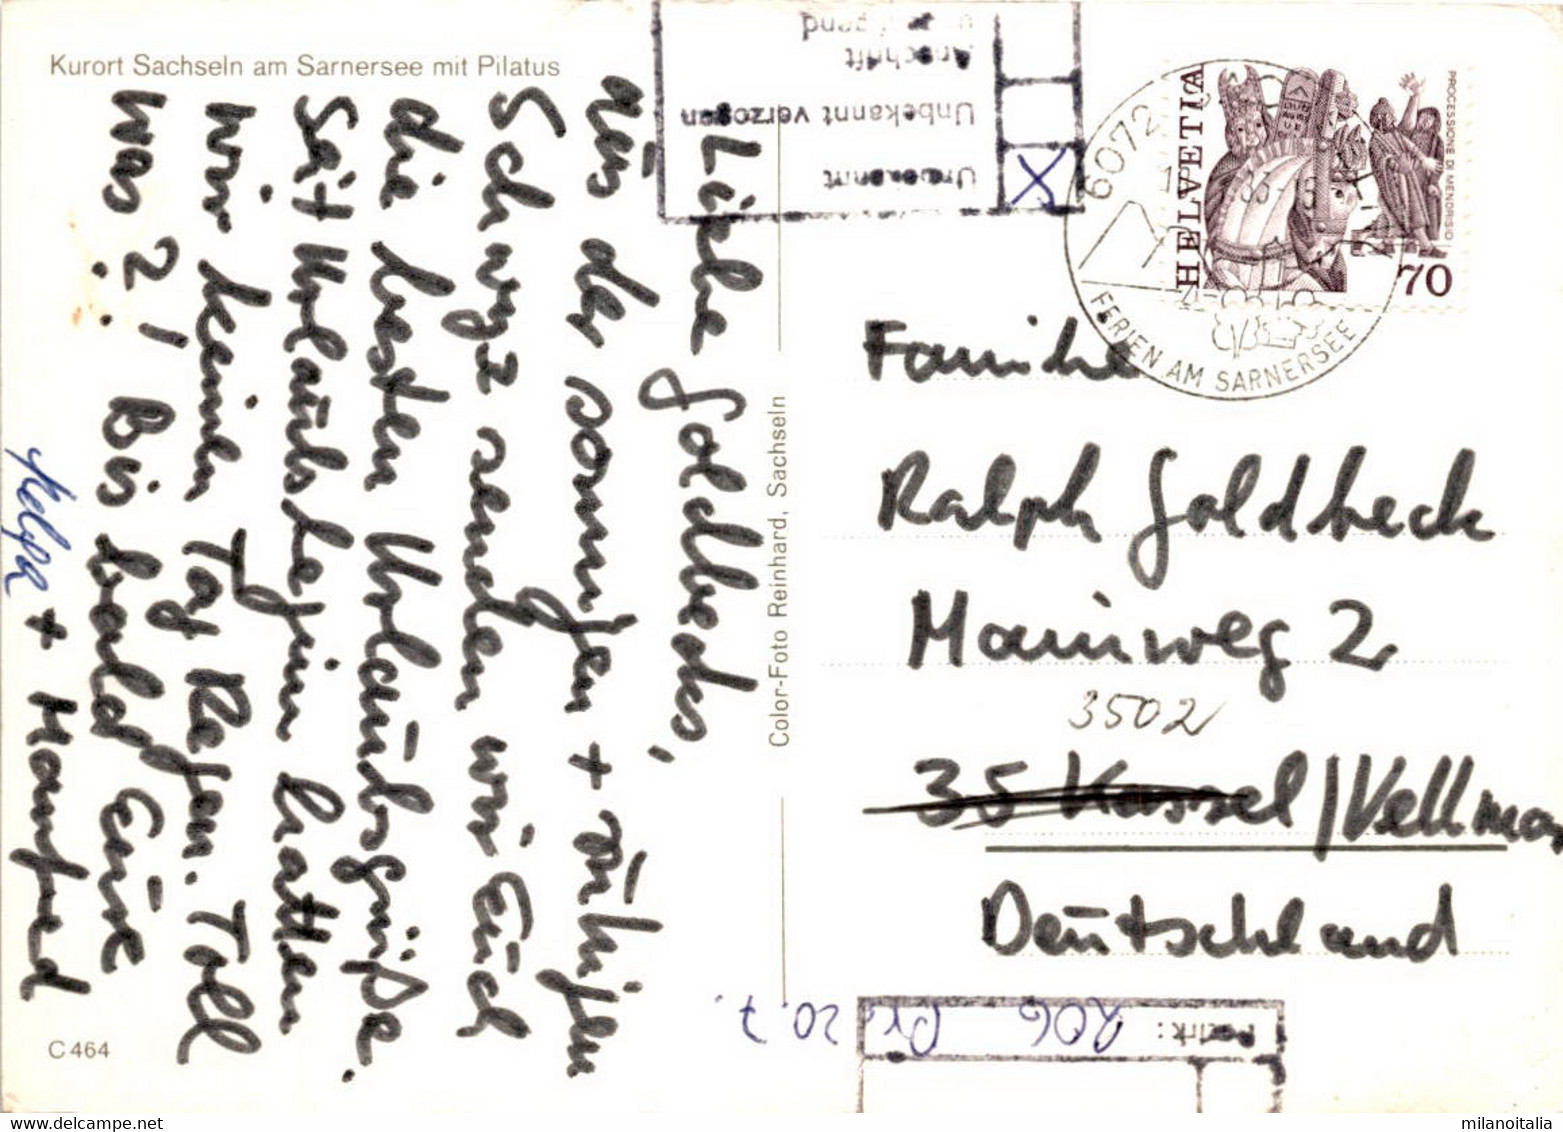 Kurort Sachseln am Sarnersee mit Pilatus
Liebe Goldbecks,
aus der sonnigen + ruhigen
Schwyz senden wir Euch
die besten Urlaubsgrüße.
Seit Urlaubsbeginn hatten
wir keinen Tag Regen. Toll
was?! Bis bald Eure
Helga + Manfred
C 464
Color-Foto Reinhard, Sachseln
Anschrift
Unbekannt verzogen
Unbekannt
X
6072
FERIEN AM SARNERSEE
HELVETIA
PROCESSIONE DI MENDRISIO
70
Familie
Ralph Goldbeck
Mainweg 2
3502
35 Kassel/Vellmar
Deutschland
Bezirk: 206
20.7.
milanoitalia